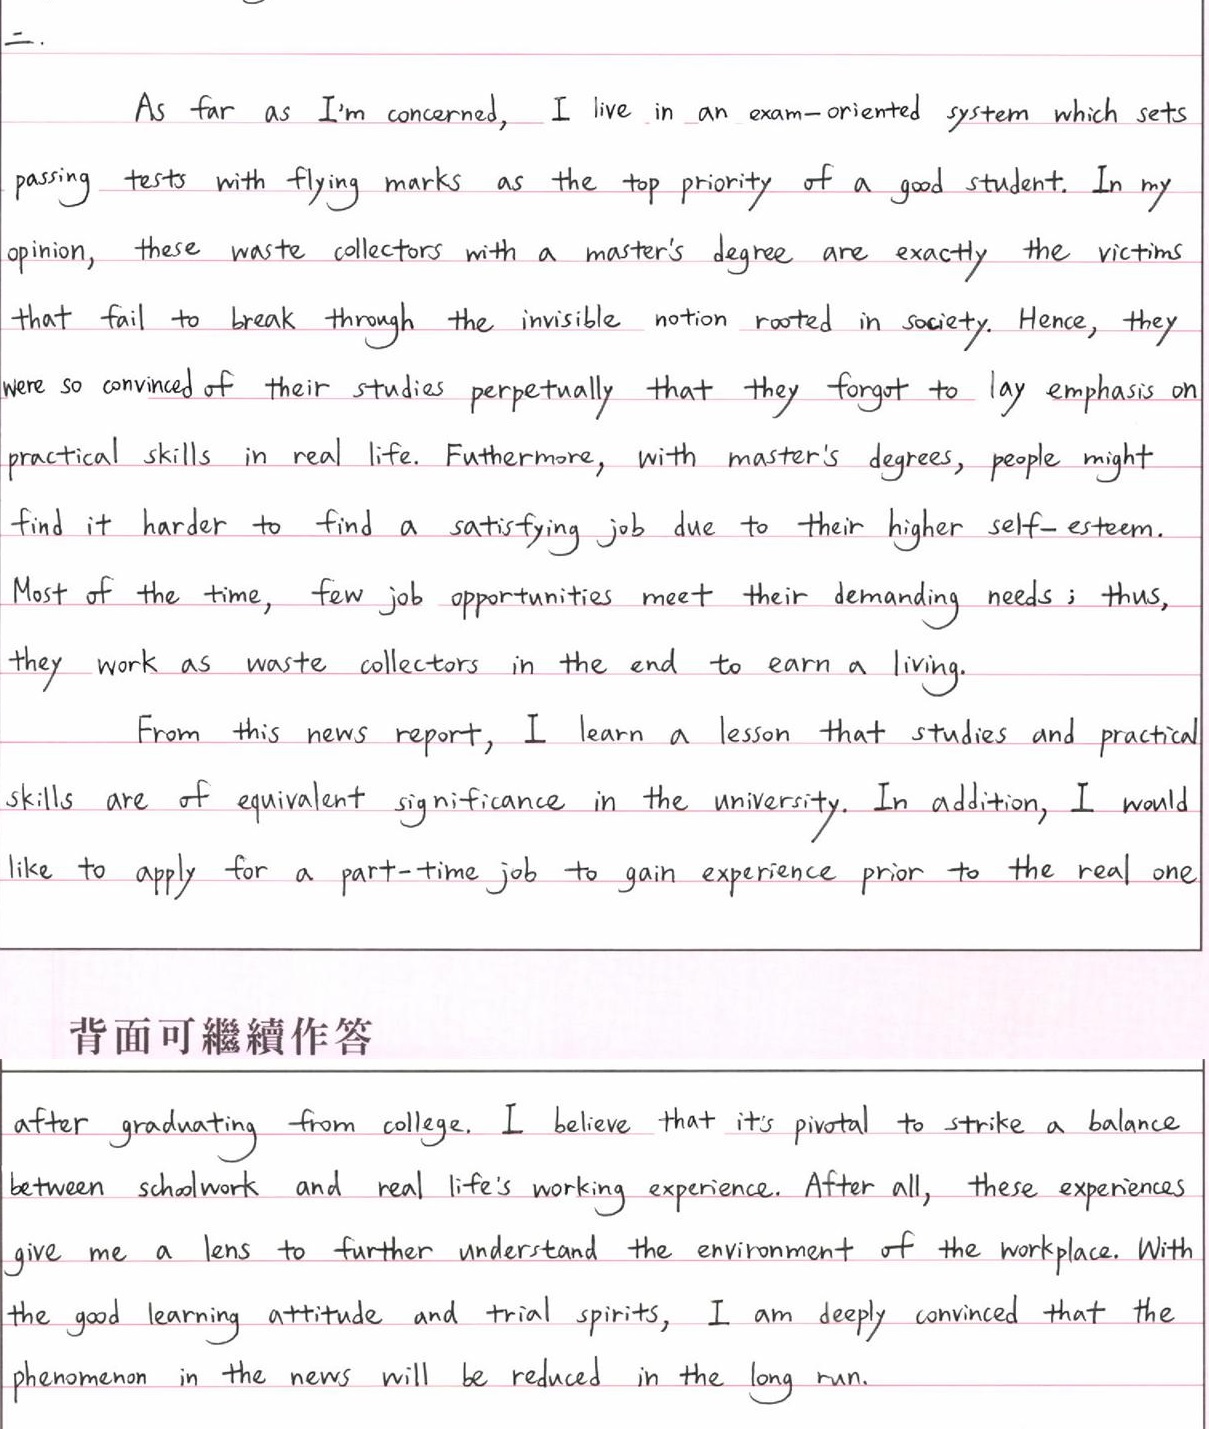 二.
As far as I'm concerned, I live in an exam-oriented system which sets
passing tests with flying marks as the top priority of a good student. In my
opinion, these waste collectors with a master's degree are exactly the victims
that fail to break through the invisible notion rooted in society. Hence, they
were so convinced of their studies perpetually that they forgot to lay emphasis on
practical skills in real life. Futhermore, with master's degrees, people might
find it harder to find a satisfying job due to their higher self-esteem.
Most of the time, few job opportunities meet their demanding needs; thus,
they work as waste collectors in the end to earn a living.
From this news report, I learn a lesson that studies and practical
skills are of equivalent significance in the university. In addition, I would
like to apply for a part-time job to gain experience prior to the real one
背面可繼續作答
after graduating from college. I believe that it's pivotal to strike a balance
between schoolwork and real life's working experience. After all, these experiences
give me a lens to further understand the environment of the workplace. With
the good learning attitude and trial spirits, I am deeply convinced that the
phenomenon in the news will be reduced in the long run.